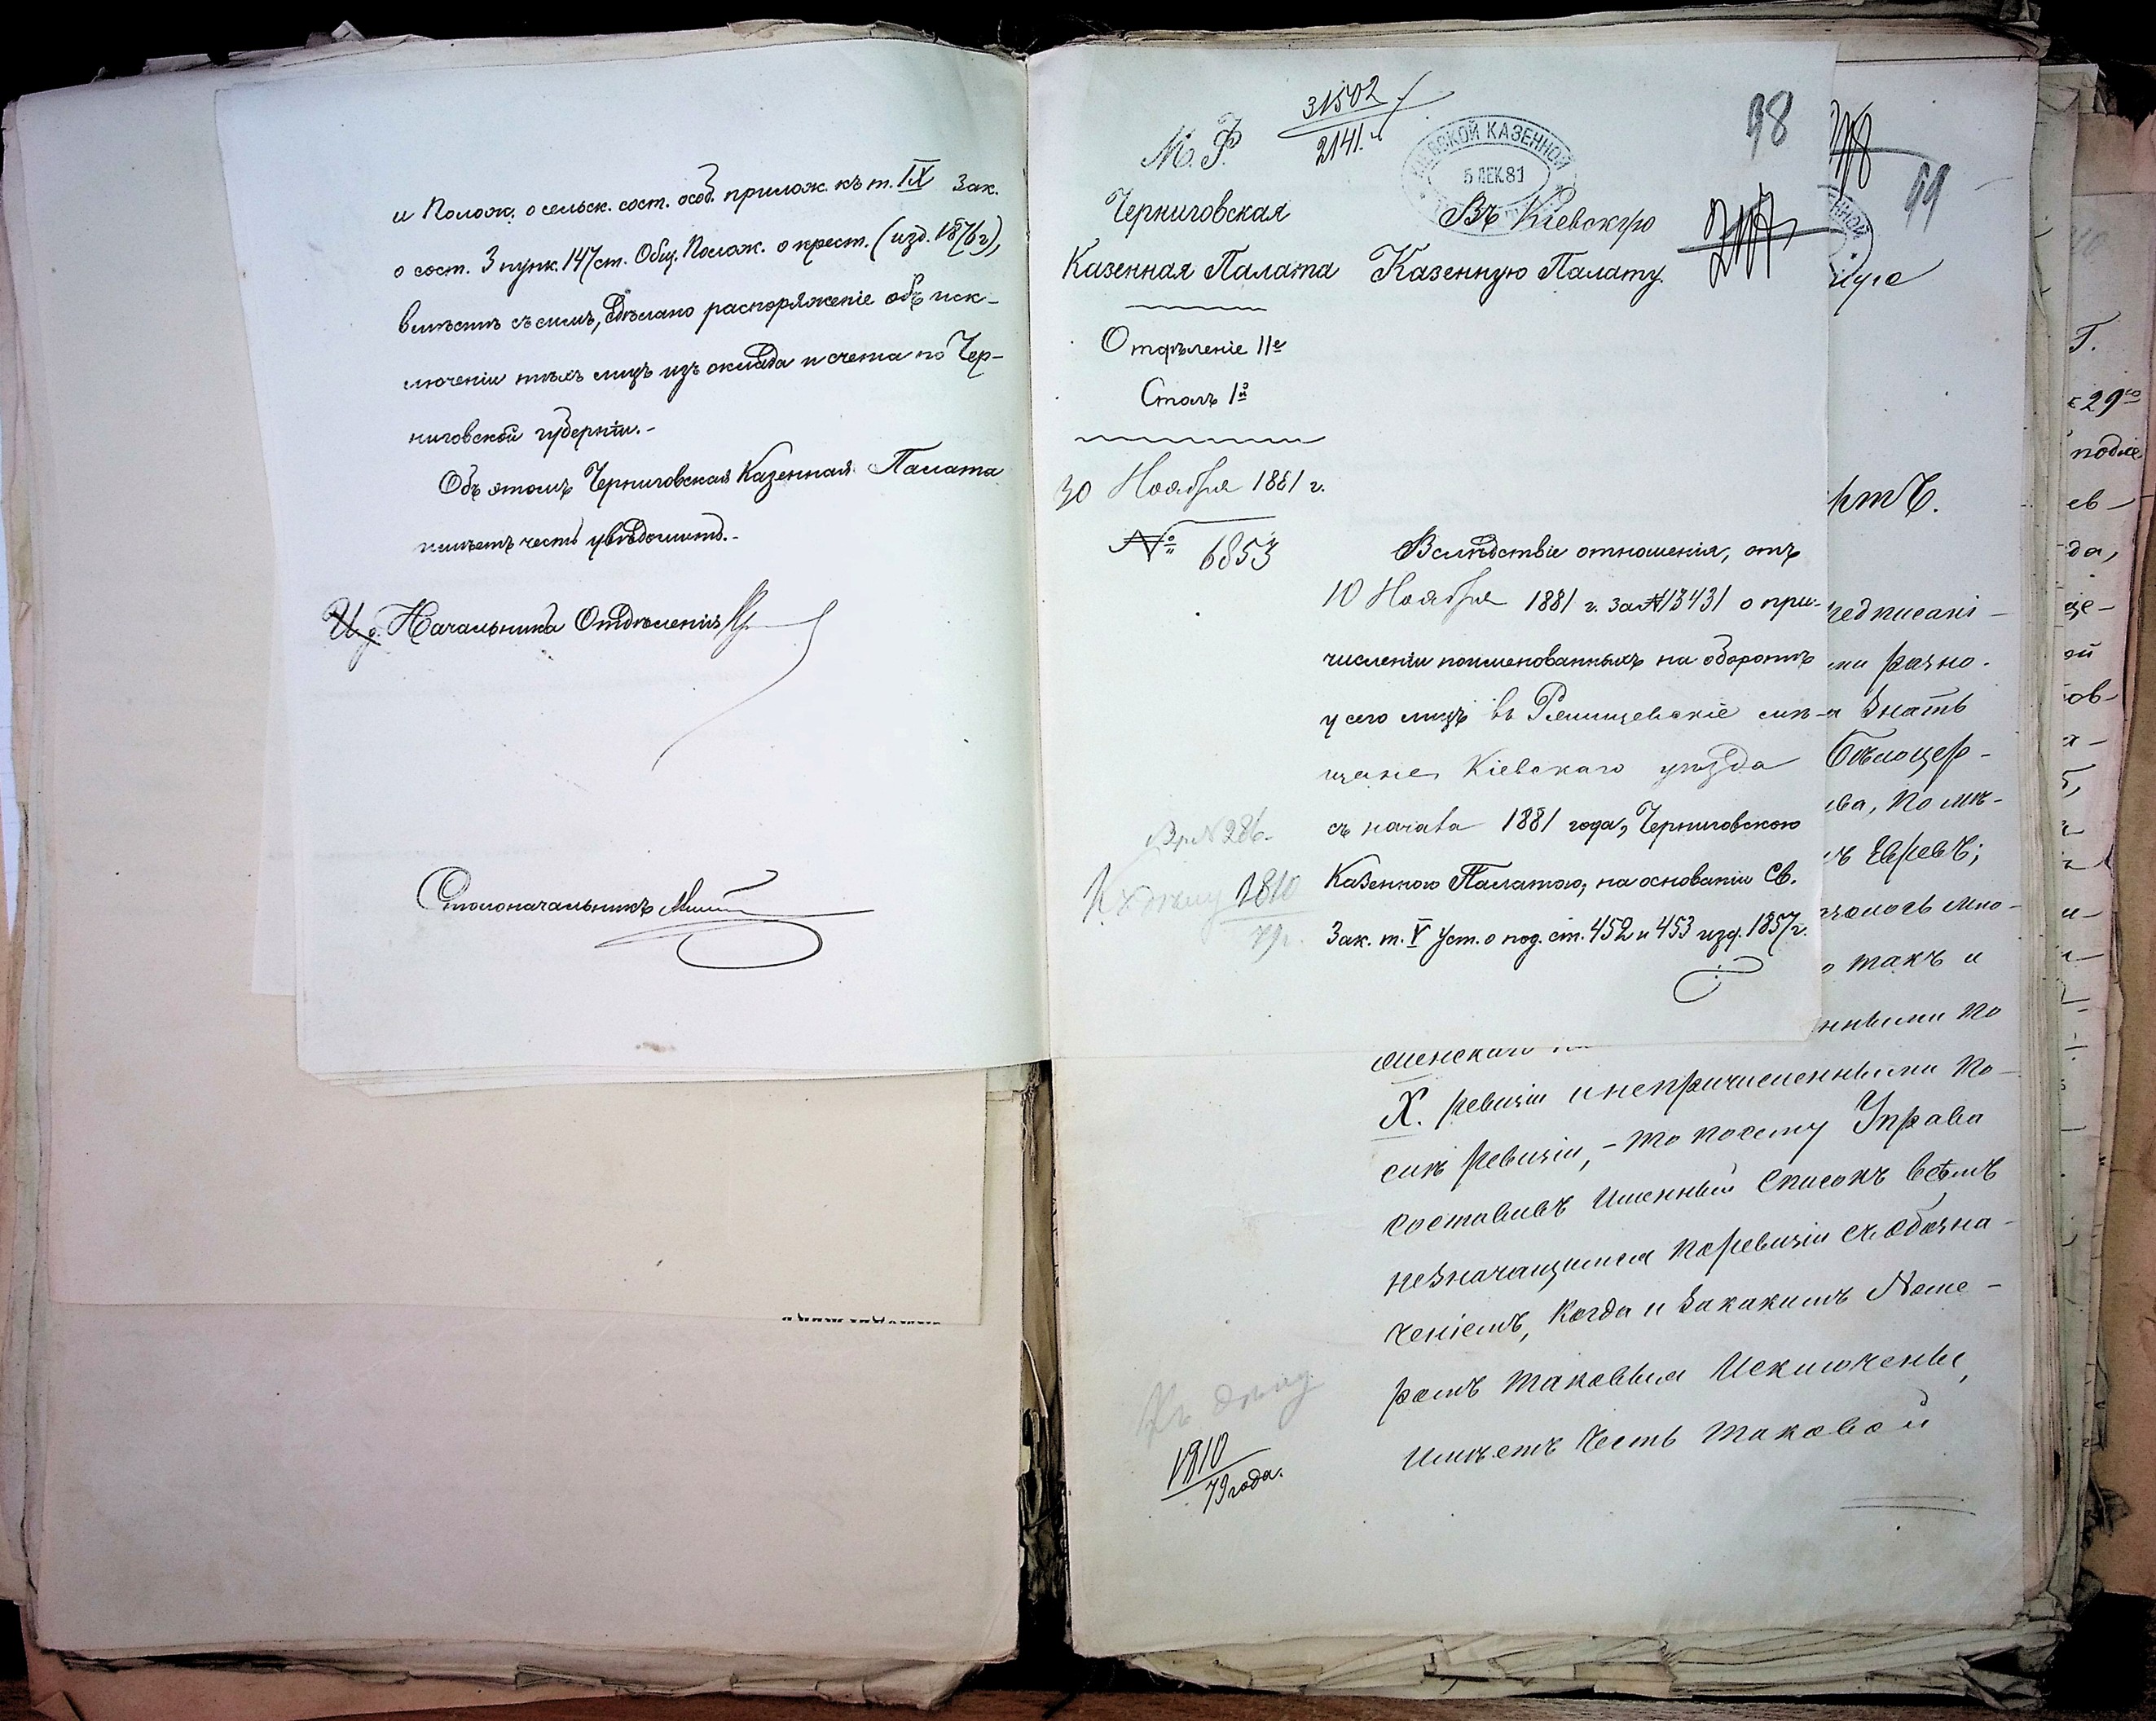 и Полож. о сельск. сост. особ. прилож. къ т. IX Зак.
о сост. 3 пунк. 147 ст. Общ. Полож. о крест. (изд. 1876 г),
вмѣстѣ съ симъ, сдѣлано распоряженіе объ иск-
люченіи тѣхъ лицъ изъ оклада и счета по Чер-
ниговской губерніи.-
Объ этомъ Черниговская Казенная Палата
имѣетъ честь увѣдомить.-
И. д. Начальника Отдѣленія
Столоначальникъ
31502
2141.
М. Ф.
Черниговская
Казенная Палата
Отдѣленіе IIе
Столъ 1й
30 Ноября 1881 г.
№ 6853
КІЕВСКОЙ КАЗЕННОЙ
5 ДЕК. 81
98
Въ Кіевскую
Казенную Палату.
Вслѣдствіе отношенія, отъ
10 Ноября 1881 г. за № 13431 о при-
численіи поименованныхъ на оборотѣ
у сего лицъ въ мѣ-
щане, Кіевскаго уѣзда
съ начала 1881 года, Черниговскою
Казенною Палатою, на основаніи Св.
Зак. т. V Уст. о под. ст. 452 и 453 изд. 1857 г.
№ 286.
1810
99
ртъ.
редписані-
ми разно-
а Знать
Бѣлоцер-
ва, По мѣ-
ъ Евреѣ;
залось мно-
о такъ и
нными по
X. ревизіи и непричисленными По-
слѣ Ревизіи, - то посему Управа
Составивъ Именный Списокъ всѣмъ
незначащимся По ревизіи съ обозна-
ченіемъ, Когда и За какимъ Номе-
ромъ таковыя Исключены,
Имѣетъ Честь таковой
Къ докла
1910
79 года.
Г.
29го
подле
ев-
да,
ще-
ой
ов-